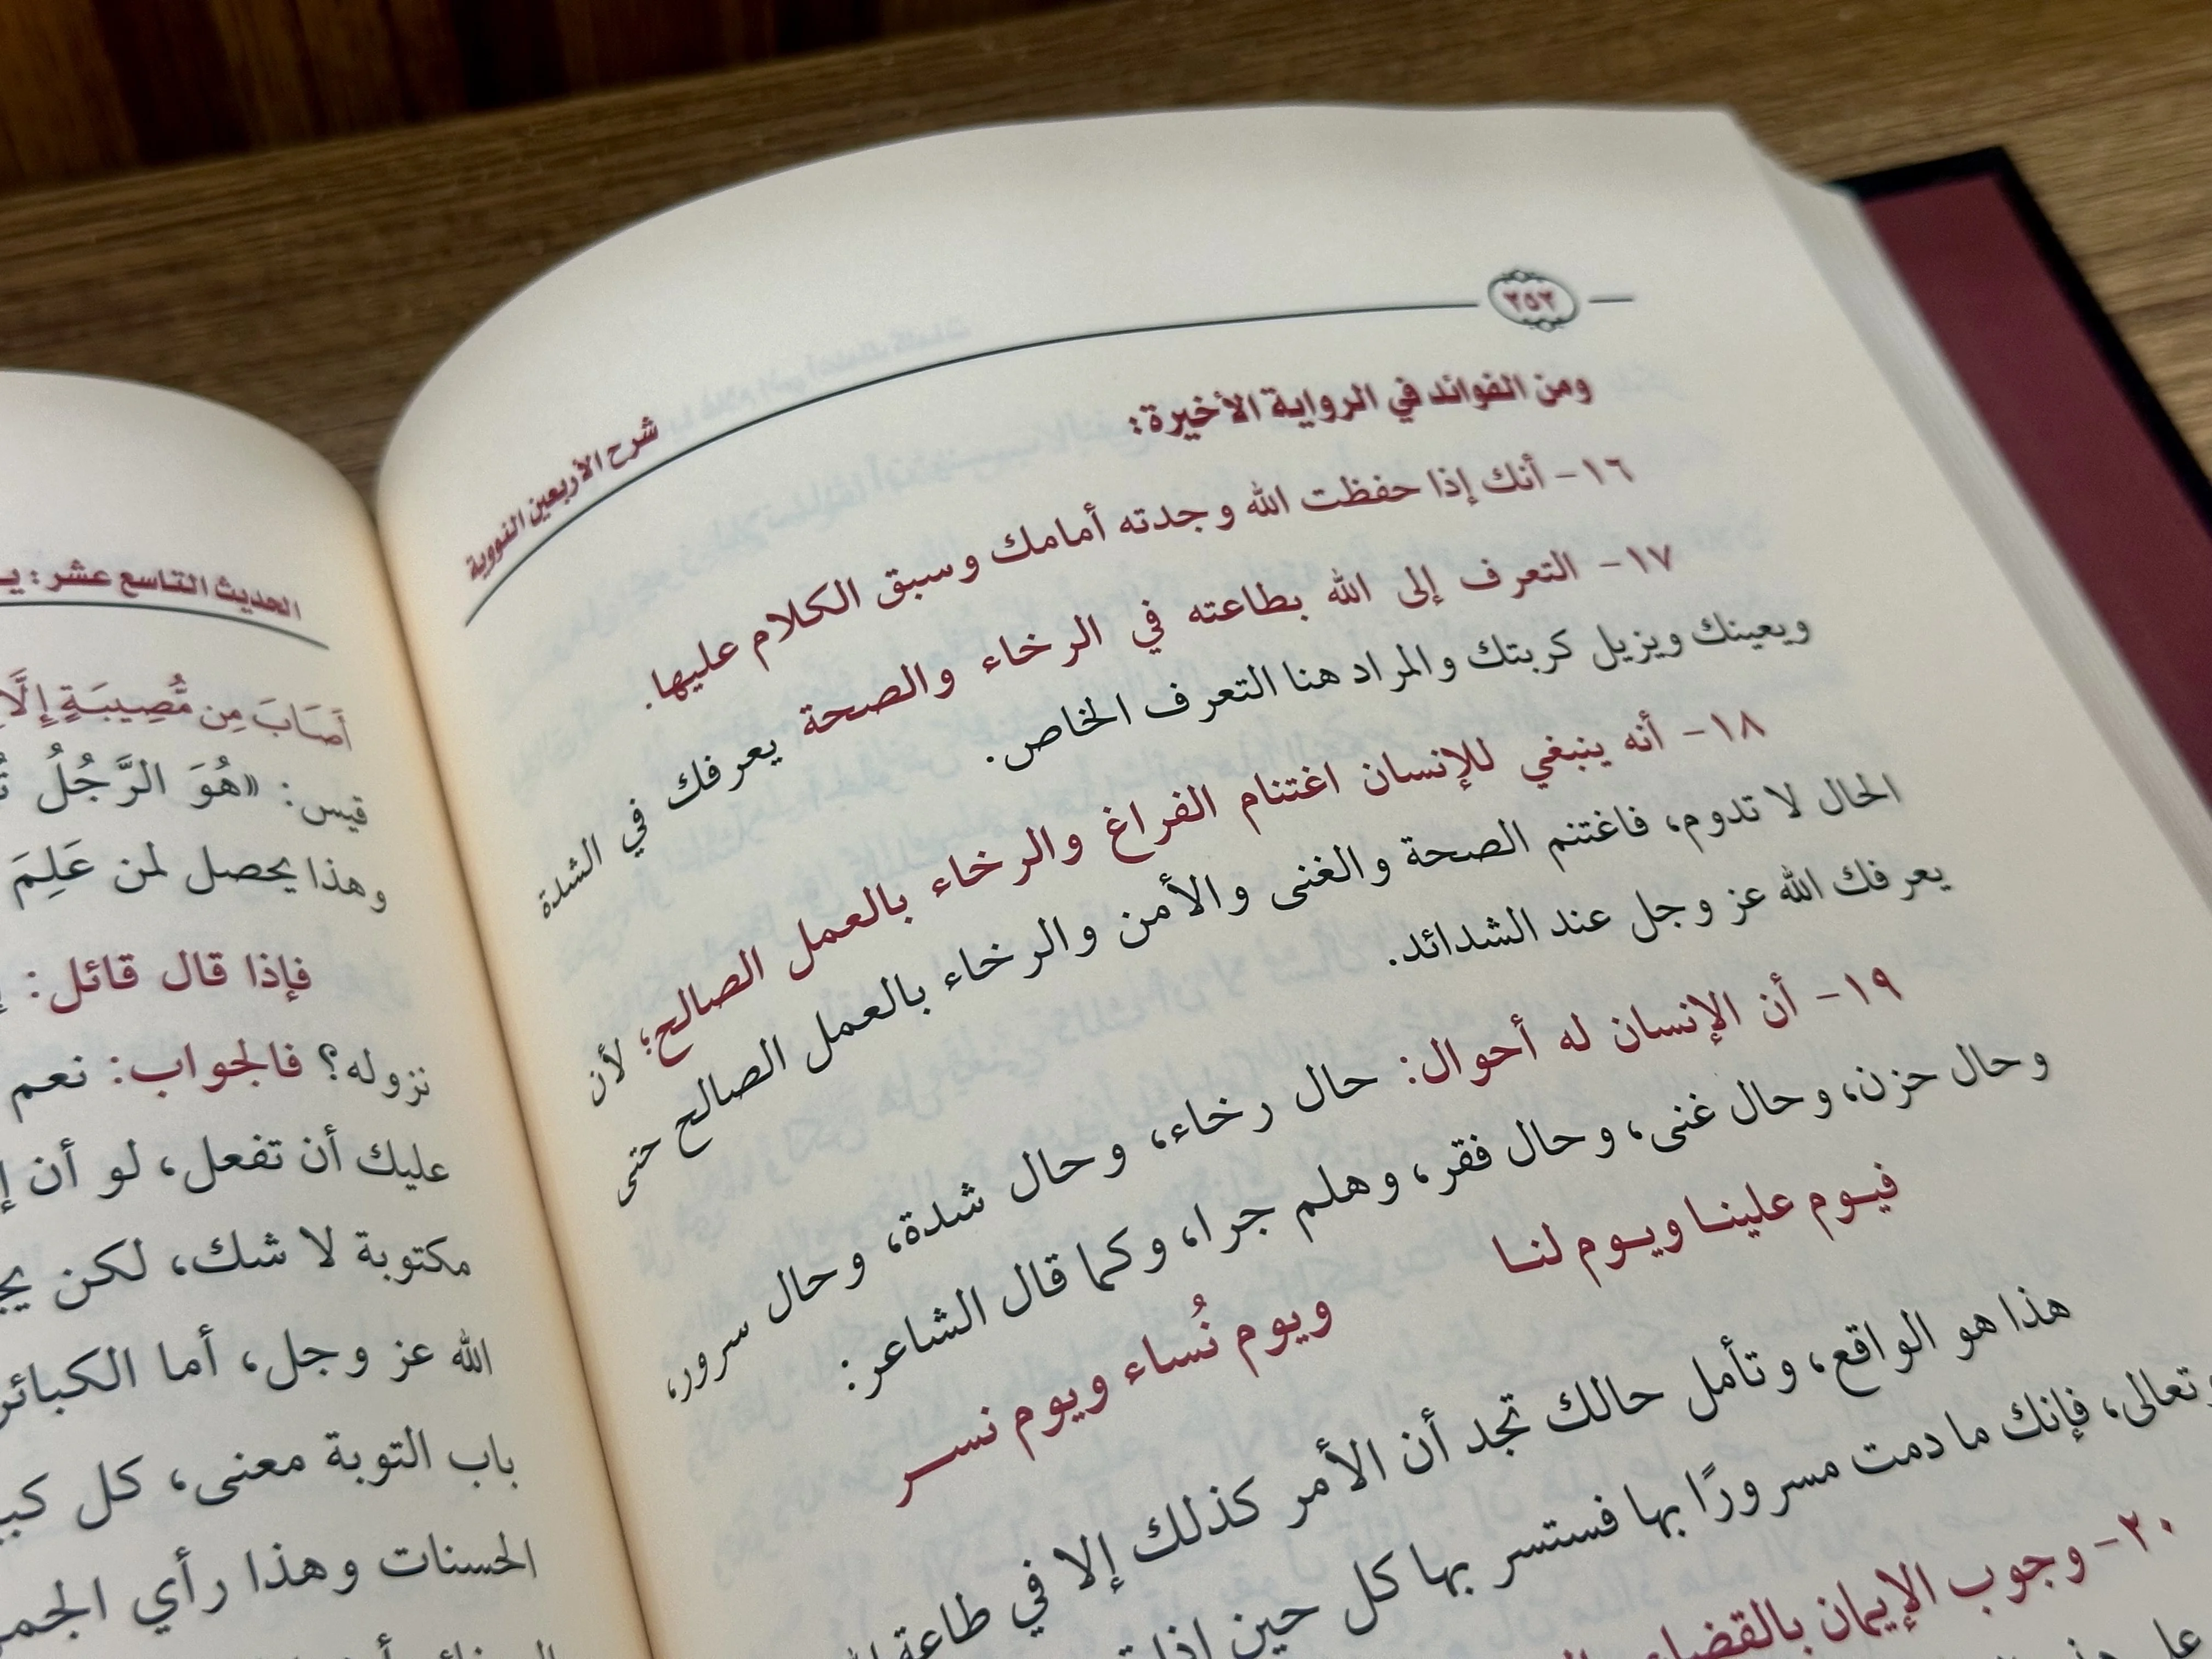 ٢٥٢
شرح الأربعين النووية
ومن الفوائد في الرواية الأخيرة:
١٦- أنك إذا حفظت الله وجدته أمامك وسبق الكلام عليها.
١٧- التعرف إلى الله بطاعته في الرخاء والصحة يعرفك في الشدة
ويعينك ويزيل كربتك والمراد هنا التعرف الخاص.
١٨- أنه ينبغي للإنسان اغتنام الفراغ والرخاء بالعمل الصالح؛ لأن
الحال لا تدوم، فاغتنم الصحة والغنى والأمن والرخاء بالعمل الصالح حتى
يعرفك الله عز وجل عند الشدائد.
١٩- أن الإنسان له أحوال: حال رخاء، وحال شدة، وحال سرور،
وحال حزن، وحال غنى، وحال فقر، وهلم جرا، وكما قال الشاعر:
فيوم علينا ويوم لنا ويوم نُساء ويوم نسر
هذا هو الواقع، وتأمل حالك تجد أن الأمر كذلك إلا في طاعة
وتعالى، فإنك ما دمت مسرورًا بها فستسر بها كل حين
٢٠- وجوب الإيمان بالقضاء
الحديث التاسع عشر:
أَصَابَ مِن مُّصِيبَةٍ إِلَّا
قيس: «هُوَ الرَّجُلُ
وهذا يحصل لمن عَلِمَ
فإذا قال قائل:
نزوله؟ فالجواب: نعم
عليك أن تفعل، لو أن
مكتوبة لا شك، لكن
الله عز وجل، أما الكبائر
باب التوبة معنى، كل
الحسنات وهذا رأي